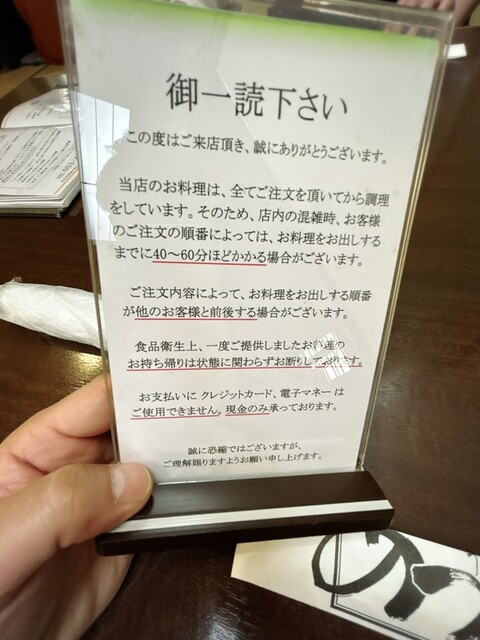 御一読下さい
この度はご来店頂き、誠にありがとうございます。
当店のお料理は、全てご注文を頂いてから調理
をしています。そのため、店内の混雑時、お客様
のご注文の順番によっては、お料理をお出しする
までに40～60分ほどかかる場合がございます。
ご注文内容によって、お料理をお出しする順番
が他のお客様と前後する場合がございます。
食品衛生上、一度ご提供しましたお料理の
お持ち帰りは状態に関わらずお断りしております。
お支払いに クレジットカード、電子マネー は
ご使用できません。現金のみ承っております。
誠に恐縮ではございますが、
ご理解賜りますようお願い申し上げます。